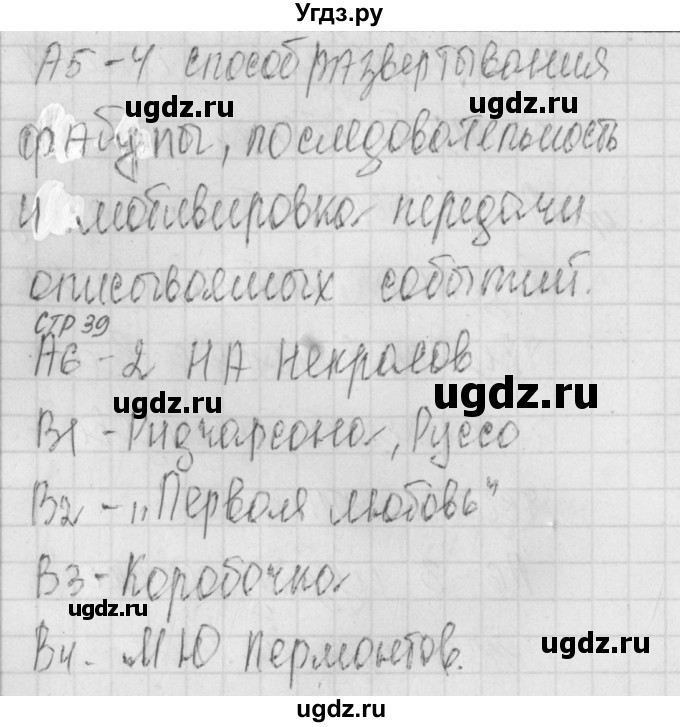 Угдз.ру
А5-4 способ развертывания
ugdz.ru ugdz.ru
фабулы, последовательность
и мотивировка передачи
ugdz.ru ugdz.ru
описываемых событий.
стр 39
А6-2 НА Некрасов
ugdz.ru ugdz.ru
В1 - Ридчарсона, Руссо
В2 - „Первая любовь"
ugdz.ru ugdz.ru
В3 - Коробочка
ugdz.ru ugdz.ru
В4. М Ю Лермонтов.
ugdz.ru